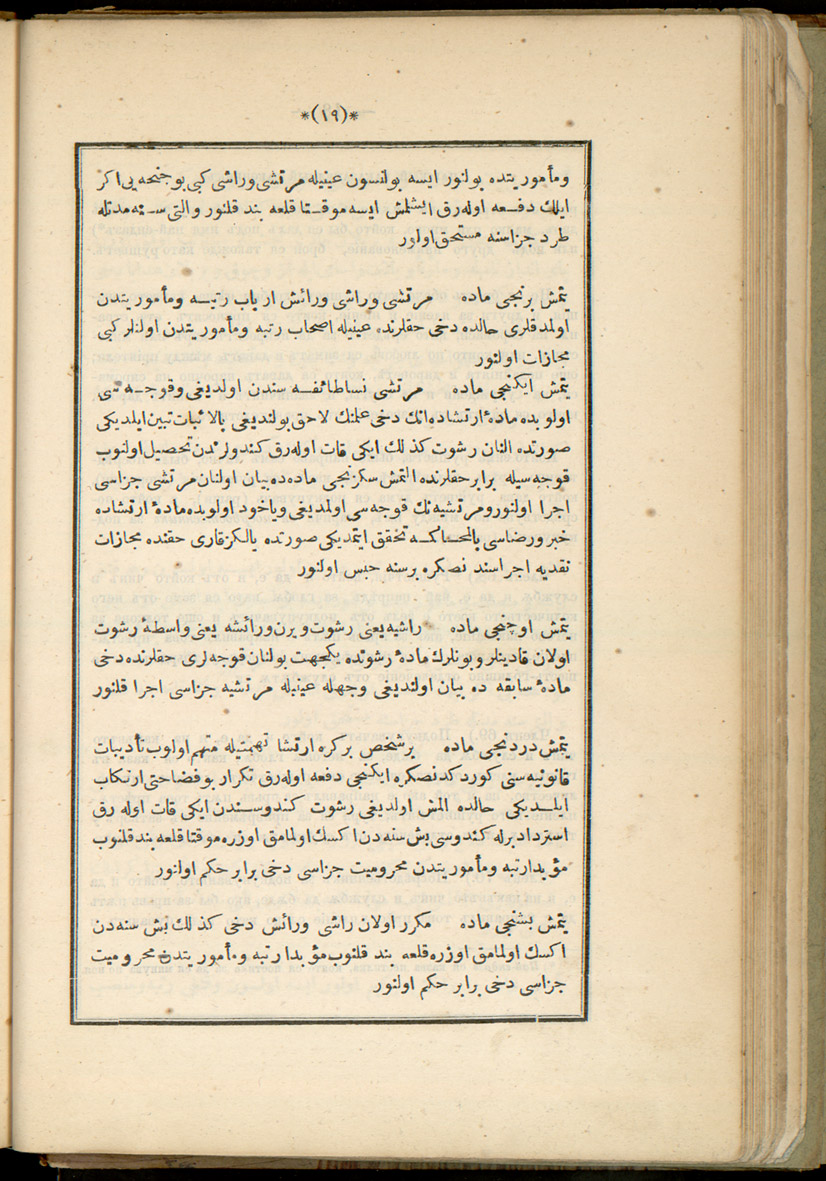 *(١٩)*
ومأموريتده بولنور ايسه بولنسون عينيله مرتشى وراشى كبى بوجنحه يى اكر
ايلك دفعه اوله رق ايشلمش ايسه موقتا قلعه بند قلنور والتى سنه مدتله
طرد جزاسنه مستحق اولور
يتمش برنجى ماده مرتشى وراشى ورائش ارباب رتبه ومأموريتدن
اولمدقلرى حالده دخى حقلرنده عينيله اصحاب رتبه ومأموريتدن اولنلر كبى
مجازات اولنور
يتمش ايكنجى ماده مرتشى نسا طائفه سندن اولديغى وقوجه سى
اولوبده مادۀ ارتشاده انك دخى علمنك لاحق بولنديغى بالاثبات تبين ايلديكى
صورتده النان رشوت كذلك ايكى قات اوله رق كندولرندن تحصيل اولنوب
قوجه سيله برابر حقلرنده التمش سكزنجى ماده ده بيان اولنان مرتشى جزاسى
اجرا اولنور ومرتشيه نك قوجه سى اولمديغى وياخود اولوبده مادۀ ارتشاده
خبر ورضاسى بالمحاكمه تحقق ايتمديكى صورتده يالكز قارى حقنده مجازات
نقديه اجراسندنصكره برسنه حبس اولنور
يتمش اوچنجى ماده راشيه يعنى رشوت ويرن ورائشه يعنى واسطۀ رشوت
اولان قادينلر وبونلرك مادۀ رشوتده يكجهت بولنان قوجه لرى حقلرنده دخى
مادۀ سابقه ده بيان اولنديغى وجهله عينيله مرتشيه جزاسى اجرا قلنور
يتمش دردنجى ماده برشخص بركره ارتشا تهمتيله متهم اولوب تأديبات
قانونيه سنى كوردكدنصكره ايكنجى دفعه اوله رق تكرار بوفضاحتى ارتكاب
ايلديكى حالده المش اولديغى رشوت كندوسندن ايكى قات اوله رق
استرداد برله كندوسى بش سنه دن اكسك اولمامق اوزره موقتا قلعه بند قلنوب
مؤبدا رتبه ومأموريتدن محروميت جزاسى دخى برابر حكم اولنور
يتمش بشنجى ماده مكرر اولان راشى ورائش دخى كذلك بش سنه دن
اكسك اولمامق اوزره قلعه بند قلنوب مؤبدا رتبه ومأموريتدن محروميت
جزاسى دخى برابر حكم اولنور